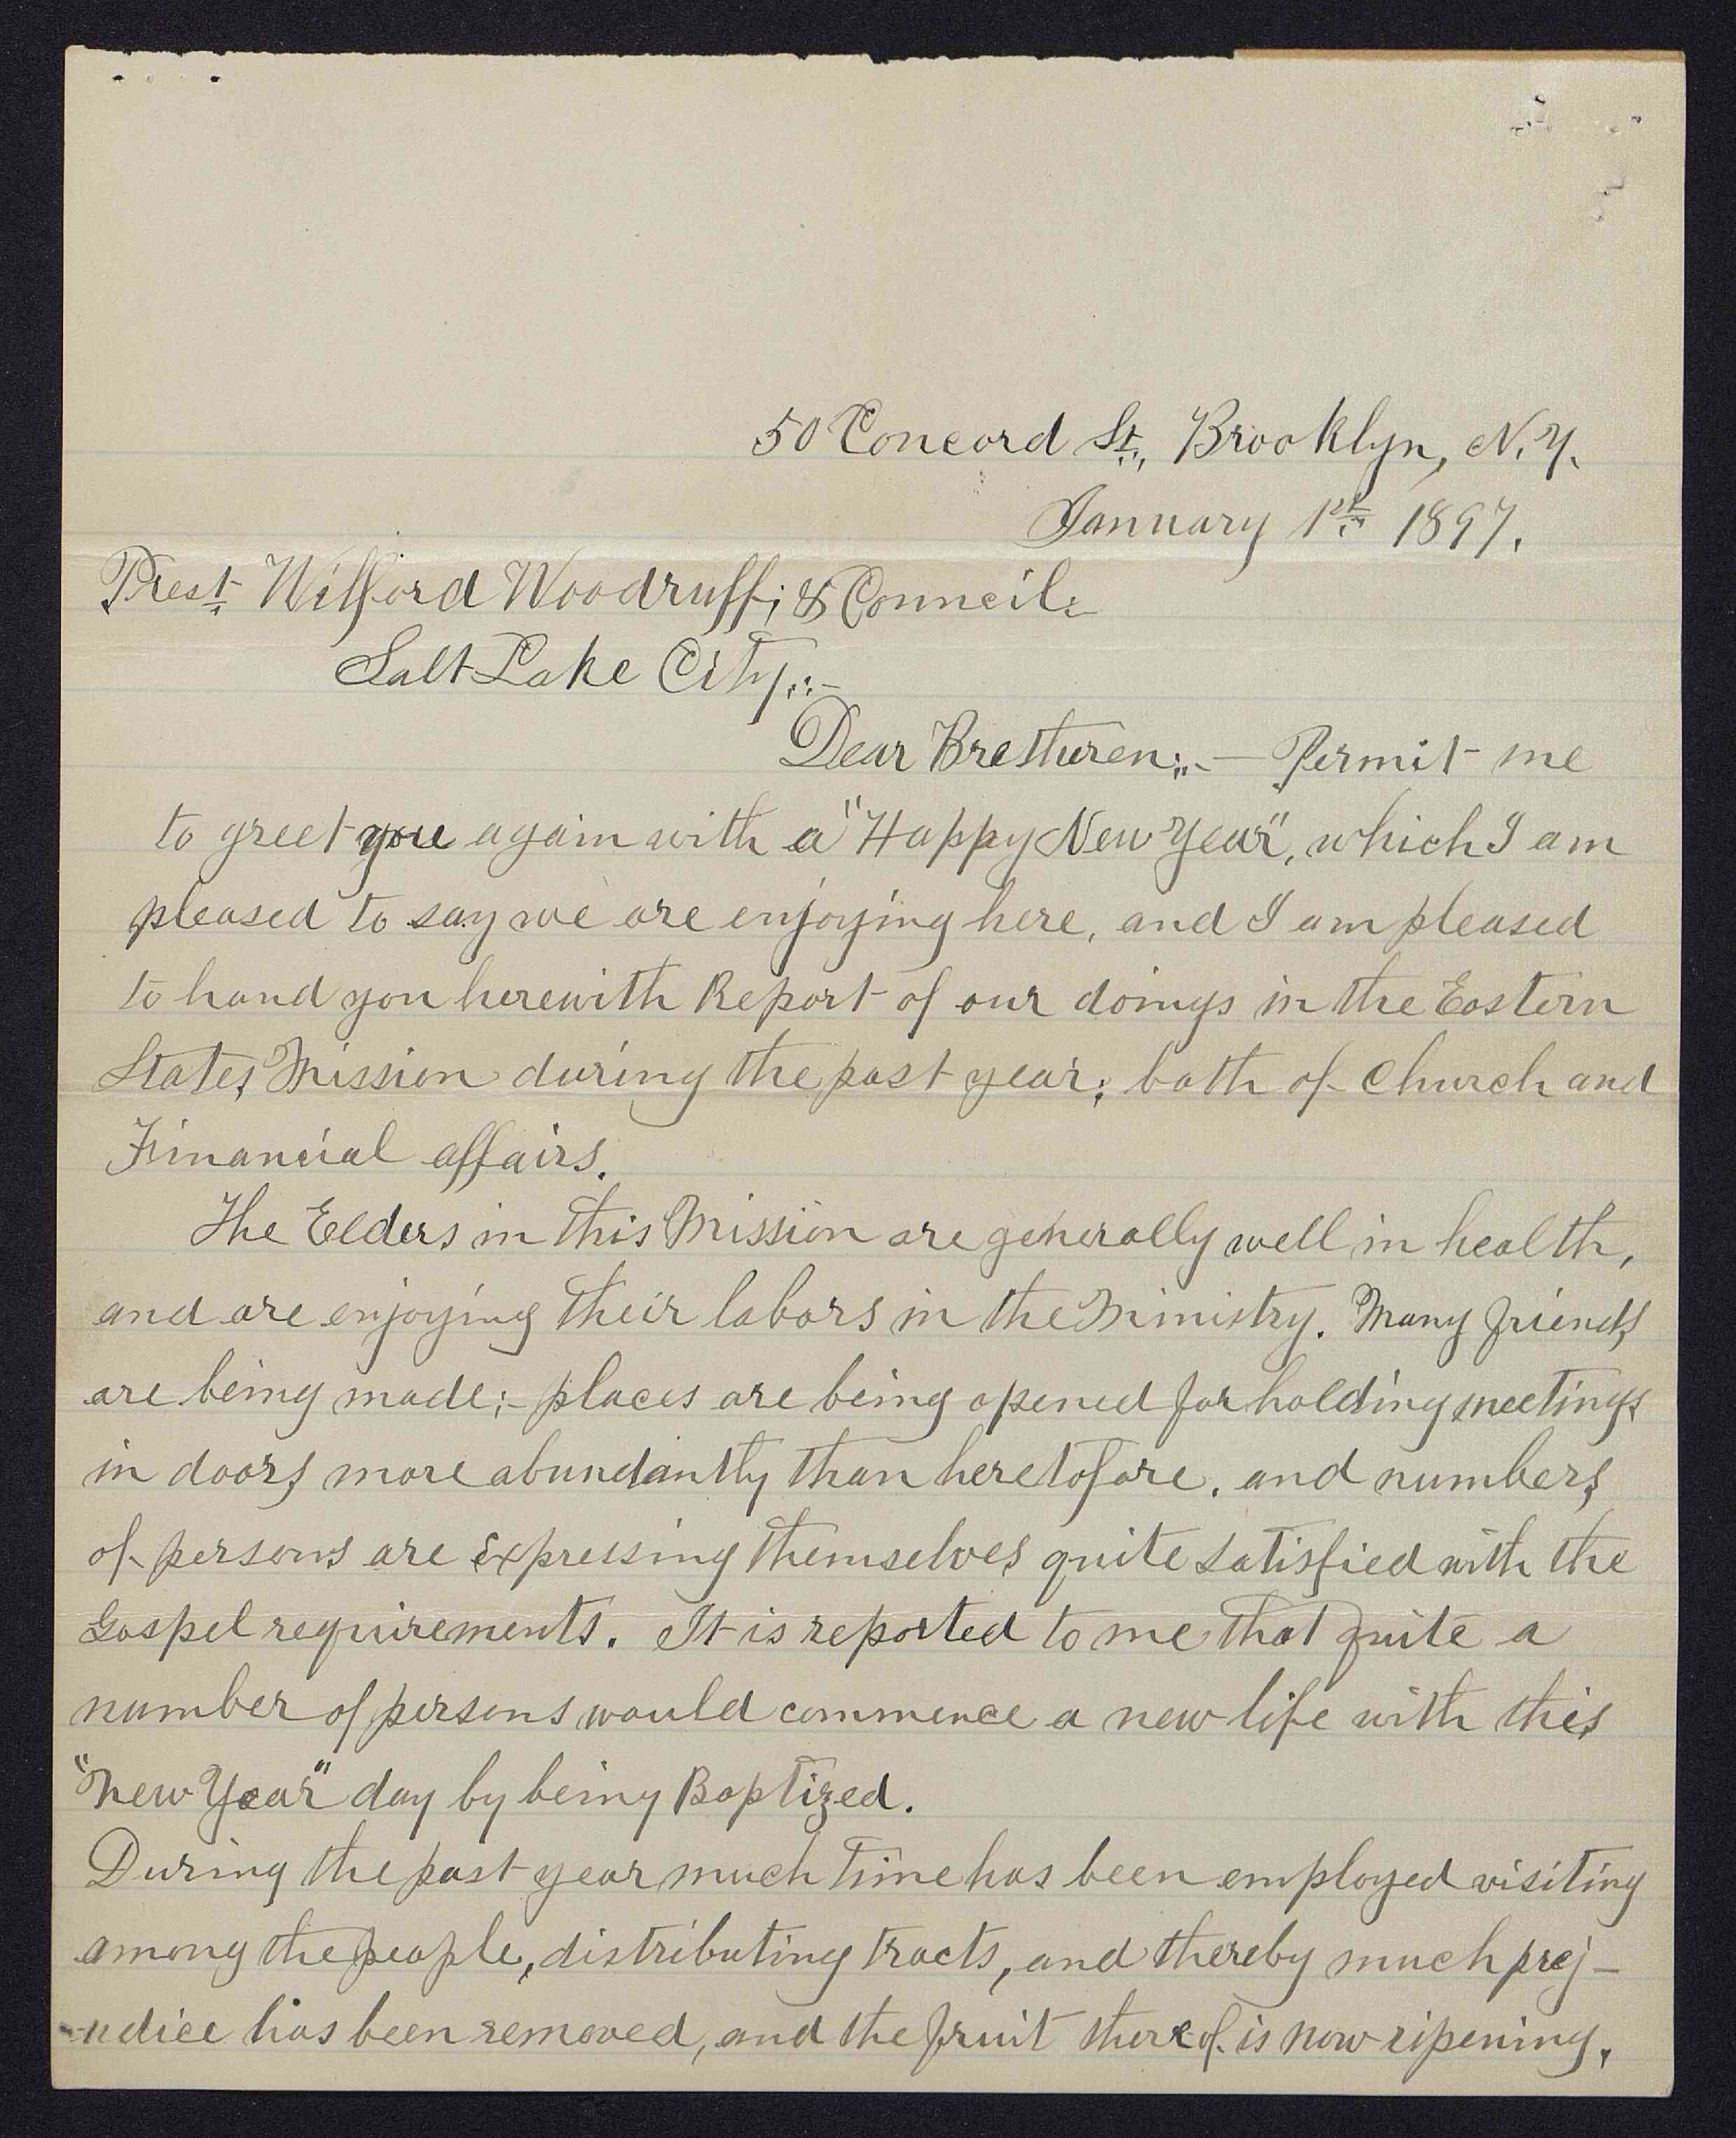 50 Concord St., Brooklyn, N.Y.
January 1st 1897.
Prest. Wilford Woodruff; & Council:
Salt Lake City.:-
Dear Bretheren:.- Permit me
to greet you again with a "Happy New Year", which I am
pleased to say we are enjoying here, and I am pleased
to hand you herewith Report of our doings in the Eastern
States Mission during the past year; both of Church and
Financial affairs.
The Elders in this Mission are generally well in health,
and are enjoying their labors in the Ministry. Many friends
are being made;- places are being opened for holding meetings
in doors more abundantly than heretofore, and numbers
of persons are expressing themselves quite satisfied with the
Gospel requirements. It is reported to me that quite a
number of persons would commence a new life with this
"New Year" day by being Baptized.
During the past year much time has been employed visiting
among the people, distributing tracts, and thereby much prej-
-udice has been removed, and the fruit thereof is now ripening.